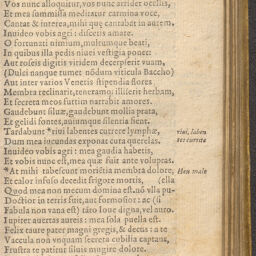 Vos nunc alloquitur, vos nunc arridet ocellis,
Et mea submissa meditatur carmina voce,
Cantat & interea, mihi quæ cantabat in aurem,
Inuideo vobis agri: discetis amare.
O fortunati nimium, multumque beati,
In quibus illa pedis niuei vestigia ponet:
Aut roseis digitis viridem decerpserit vuam,
(Dulci nanque tumet nōdum viticula Baccho)
Aut inter varios Veneris stipendia flores
Membra reclinarit, teneramq; illiserit herbam,
Et secreta meos furtim narrabit amores.
Gaudebunt siluæ, gaudebunt mollia prata,
Et gelidi fontes, auiumque silentia fient.
Tardabunt *riui labentes currere lymphæ, riui, laben
Dum mea iucundas exponat cura querelas. tes currite
Inuideo vobis agri: mea gaudia habetis,
Et vobis nunc est, mea quæ fuit ante voluptas.
*At mihi tabescunt morientia membra dolore, Heu male
Et calor infuso decedit frigore mortis,
Quod mea non mecum domina est. nō vlla pu-
Doctior in terris fuit, aut formosior: ac (si
Fabula non vana est) tauro Ioue digna, vel auro.
Iupiter auertas aureis: mea sola puella est.
Felix taure pater magni gregis, & decus: a te
Vaccula non vnquam secreta cubilia captans,
Frustra te patitur siluis mugire dolore.